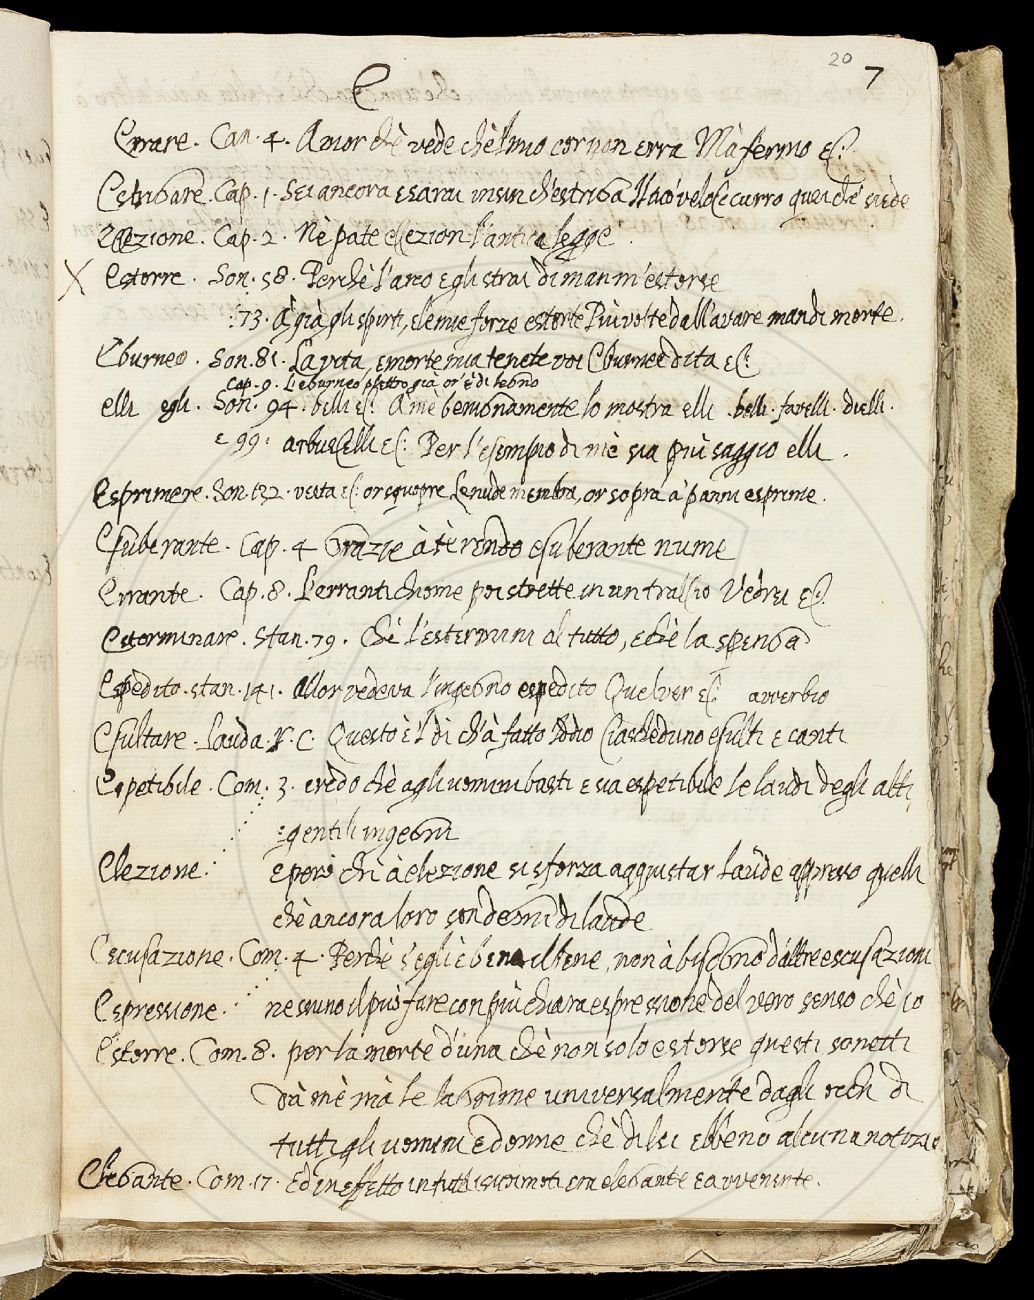 20 7
E
Errare. Can. 4. Amor chè vede chè'l mio cor non erra Mà fermo &c:
Estrigare. Cap. 1. Sei ancora e sarai insin ch'estriga Il suo veloce curro quei che siede
Elezione. Cap. 2. Nè pate elezion l'antica legge.
X Estorre. Son. 58. Perchè l'arco e gli strai di man m'estorse
:73. A già gli spirti, e le mie forze estorte Più volte dall'avare man di morte.
Eburneo. Son. 81. La vita, e morte mia tenete voi Eburnee dita &c:
Cap. 9. L'eburneo plettro già or' è di legno
elli egli. Son. 94. belli &c: A mè benignamente lo mostra elli. belli. favelli. dielli.
e 99: arbuscelli &c: Per l'esempio di mè sia più saggio elli.
Esprimere. Son. 132. vesta &c: or scuopre le nude membra, or sopra a' panni esprime.
Esuberante. Cap. 4 Grazie à tè rendo esuberante nume
Errante. Cap. 8. L'erranti chiome poi strette in un tralcio Vedrei &c.
Esterminare. Stan. 79. Chè l'estermini al tutto, e chè la spenga
Espèdito. stan. 141. Allor vedeva l'ingegno espedito Quel ver &c: avverbio
Esultare. Lauda. V. C: Questo è 'l dì ch'à fatto Iddio Ciascheduno esulti e canti
Espetibile. Com: 3. credo chè agli uomini basti e sia espetibile le laudi degli alti,
e gentili ingegni
Elezione: e però chi à elezione si sforza acquistar laude appresso quelli
chè ancora loro son degni di laude
Escusazione. Com. 4. Perchè s'egli è bene il bene, non à bisogno d'altre escusazioni
Espressione. nessuno il può fare con più chiara espressione del vero senso chè io
Estorre. Com. 8. per la morte d'una chè non solo estorse questi sonetti
dà mè mà le lagrime universalmente dagli occhi di
tutti gli uomini e donne chè di lei ebbeno alcuna notizia
Elegante. Com. 17. Ed in effetto in tutti i suoi moti era elegante e avvenente.